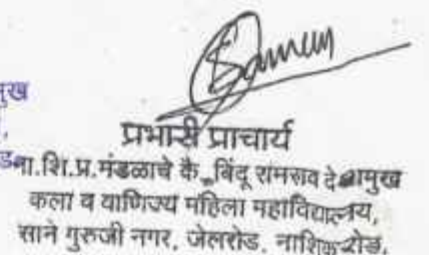 मुख
प्रभारी प्राचार्य
ना.शि.प्र.मंडळाचे कै. बिंदू रामराव देशमुख
कला व वाणिज्य महिला महाविद्यालय,
साने गुरुजी नगर, जेलरोड, नाशिकरोड.